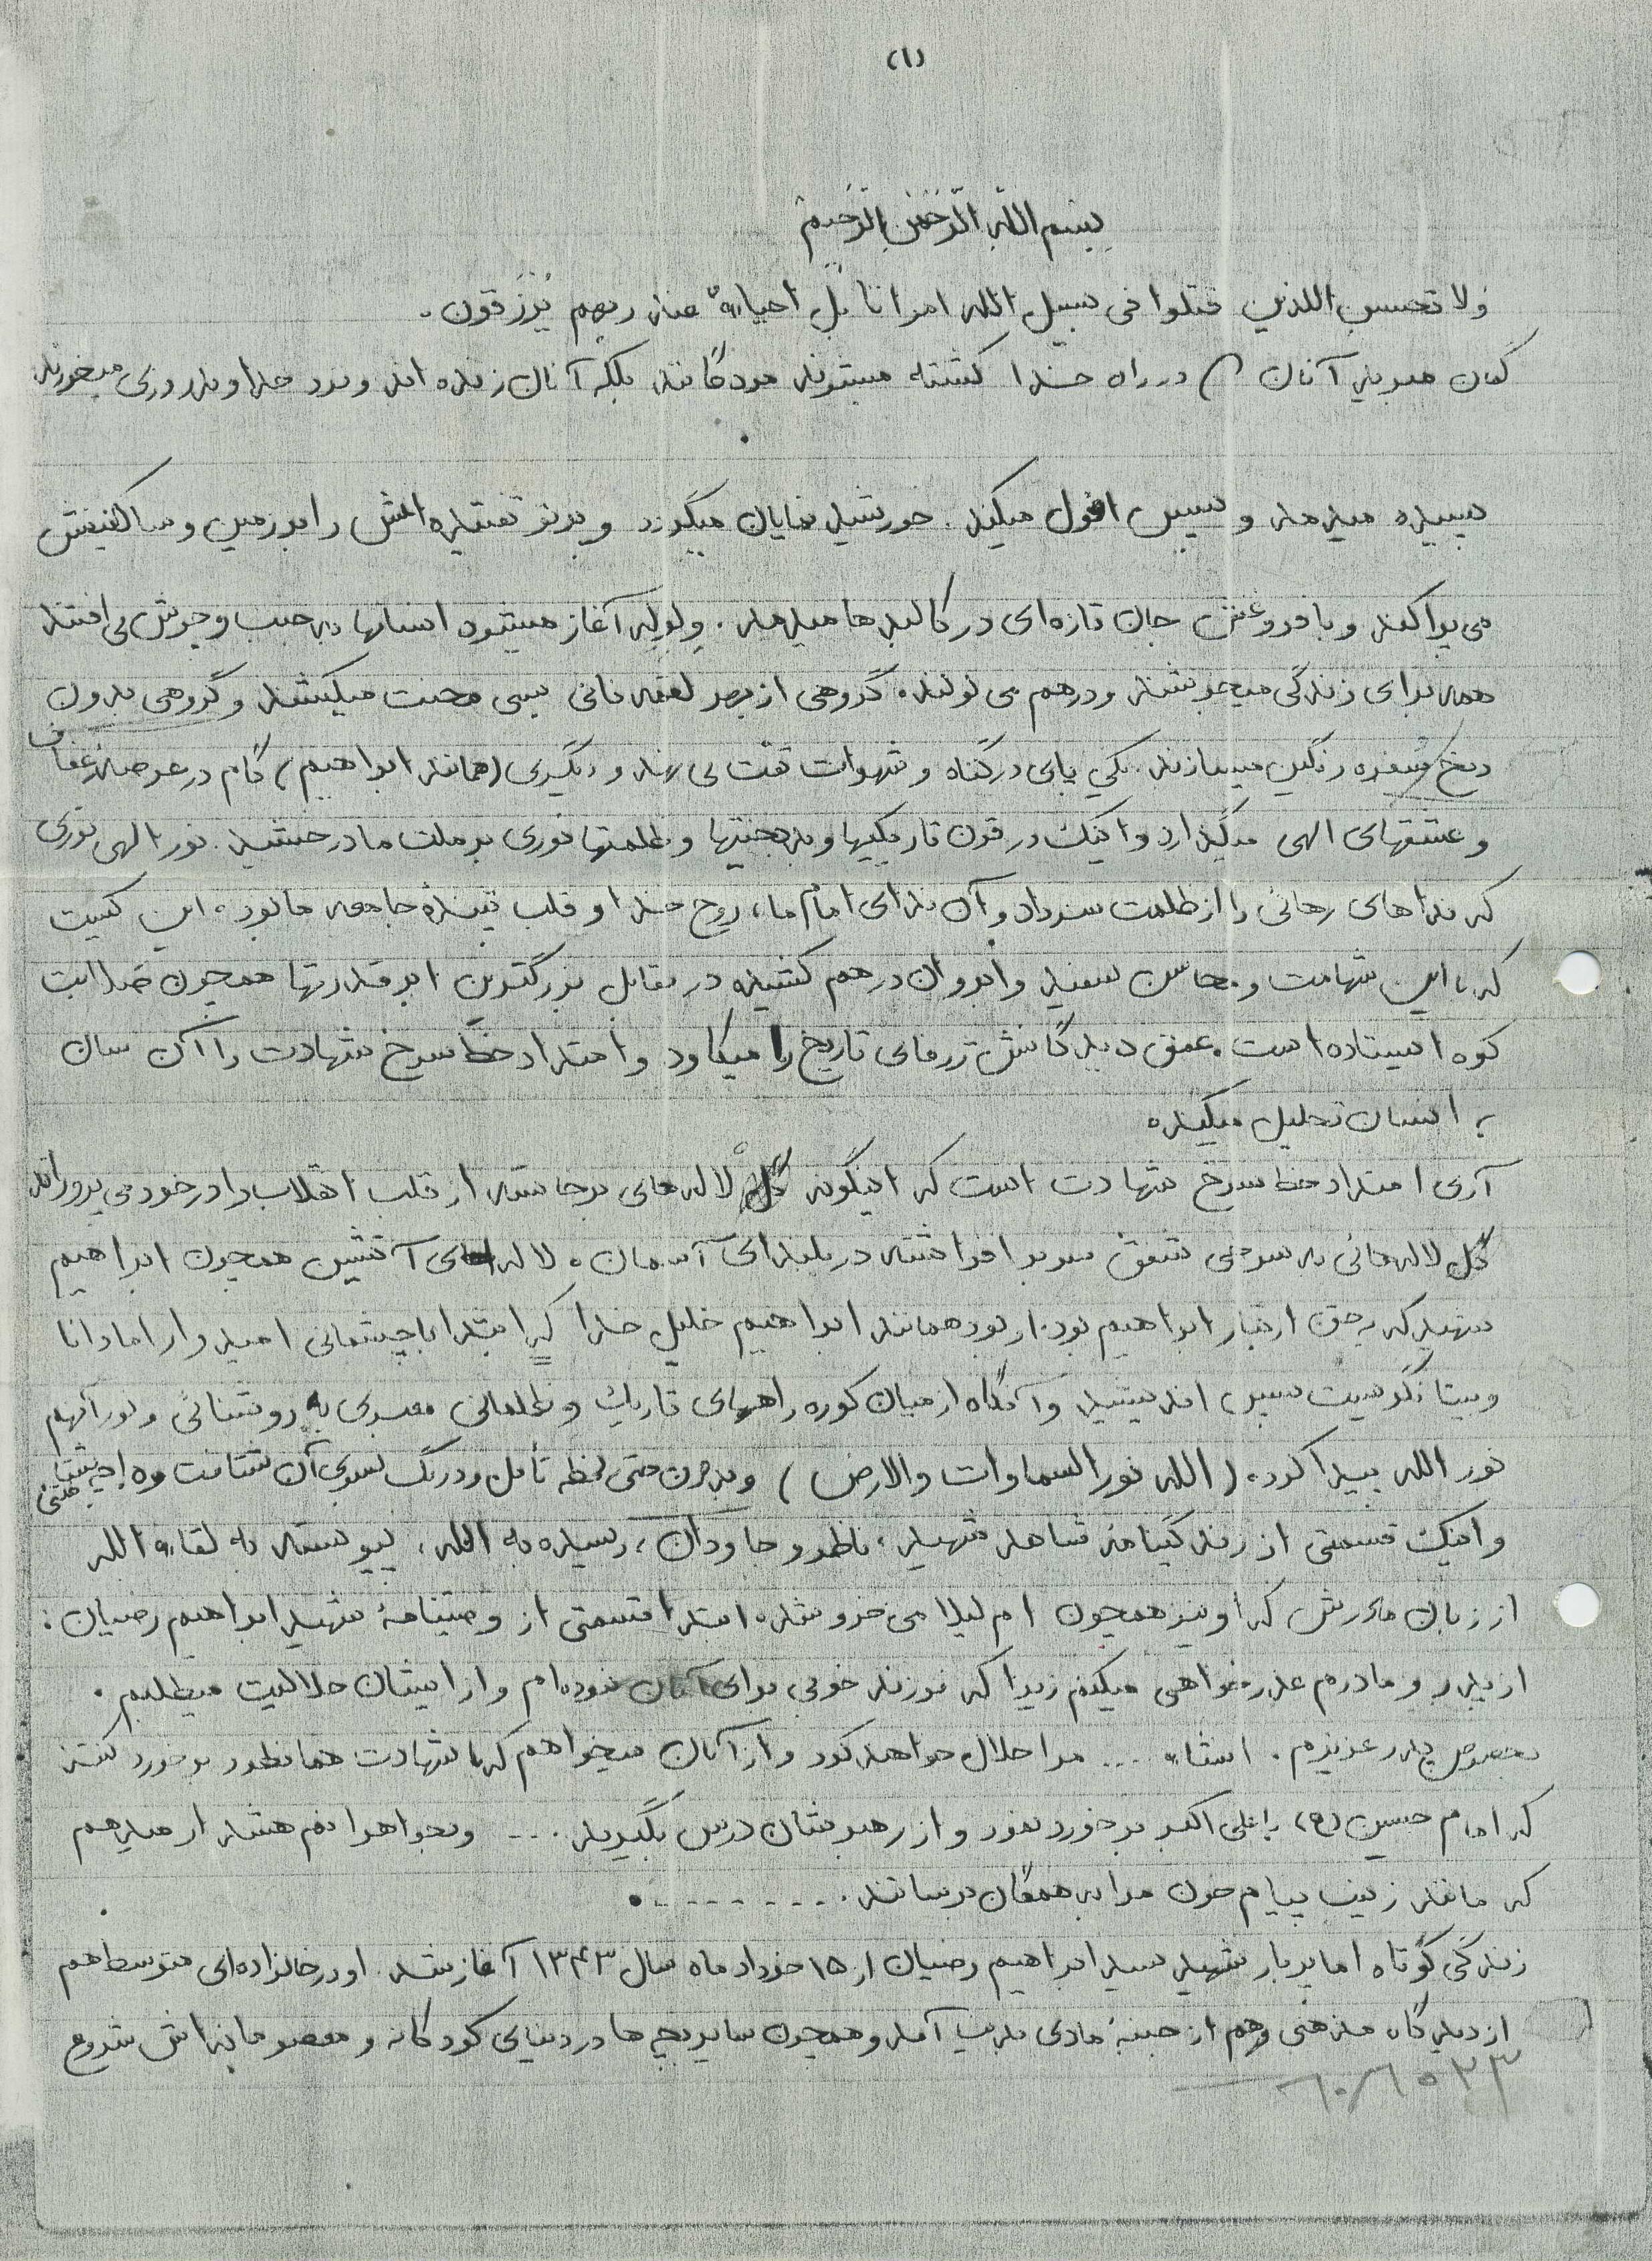 (۱)
بسم الله الرّحمن الرّحیم
وَلا تحسبن اللذین قتلوا فی سبیل الله امواتا بَل احیاءٌ عند ربهم یُرزَقون .
گمان مبرید آنان که در راه خدا کشته میشوند مردگانند بلکه آنان زنده اند و نزد خداوند روزی میخورند
سپیده میدمد و سپس افول میکند . خورشید نمایان میگردد و پرتو تفتیده اش را بر زمین و ساکنینش
می پراکند و با فروغش جان تازه‌ای در کالبدها میدمد . ولوله آغاز میشود انسانها به جنب و جوش می افتند
همه برای زندگی میجوشند و درهم می لولند . گروهی از بهر لقمه نانی بسی محنت میکشند و گروهی بدون
رنج سفره رنگین میسازند . یکی پای در گناه و شهوات تفت می نهد و دیگری (همانند ابراهیم) گام در عرصه زعفاف
و عشقهای الهی میگذارد و اینک در قرن تاریکیها و بدبختیها و ظلمتها نوری بر ملت ما درخشید . نور الهی نوری
که نداهای رهائی را از ظلمت سر داد و آن ندای امام ما ، روح خدا و قلب تپندهٔ جامعه ما بود ، این کیست
که با این شهامت و محاسن سفید و ابروان درهم کشیده در مقابل بزرگترین ابرقدرتها همچون صلابت
کوه ایستاده است . عمق دیدگانش ژرفای تاریخ را میکاود و امتداد خط سرخ شهادت را آن سان
به انسان تحلیل میکند .
آری امتداد خط سرخ شهادت است که اینگونه گل لاله های برخاسته از قلب انقلاب را در خود می پروراند
گل لاله هائی به سرخی شفق سر بر افراشته در بلندای آسمان ، لاله های آتشین همچون ابراهیم
شهید که بحق از تبار ابراهیم بود . او بود همانند ابراهیم خلیل خدا که ابتدا با چشمانی امیدوار اما دانا
و بینا نگریست سپس اندیشید و آنگاه از میان کوره راههای تاریک و ظلمانی معبری به روشنائی و نور آنهم
نور الله پیدا کرد . ( الله نور السماوات والارض ) و بدون حتی لحظه تأمل و درنگ بسوی آن شتافت وه
و اینک قسمتی از زندگینامه شاهد شهید ، ناظر و جاودان ، رسیده به الله ، پیوسته به لقاء الله
از زبان مادرش که او نیز همچون ام لیلا می خروشد . ابتدا قسمتی از وصیتنامهٔ شهید ابراهیم رضیان :
از پدر و مادرم عذرخواهی میکنم زیرا که فرزند خوبی برای آنان نبوده ام و از ایشان حلالیت میطلبم .
بخصوص پدر عزیزم . انشاء .... مرا حلال خواهد کرد و از آنان میخواهم که با شهادت همانطور برخورد کنند
که امام حسین (ع) با علی اکبر برخورد نمود و از رهبرشان درس بگیرید .... و بخواهرانم هشدار میدهم
که مانند زینب پیام خون مرا به همگان برسانند . . . . . . . . . .
زندگی کوتاه اما پربار شهید سید ابراهیم رضیان از ۱۵ خرداد ماه سال ۱۳۴۳ آغاز شد . او در خانواده ای متوسط هم
از دیدگاه مذهبی و هم از جنبهٔ مادی بدنیا آمد و همچون سایر بچه ها در دنیای کودکانه و معصومانه اش شروع